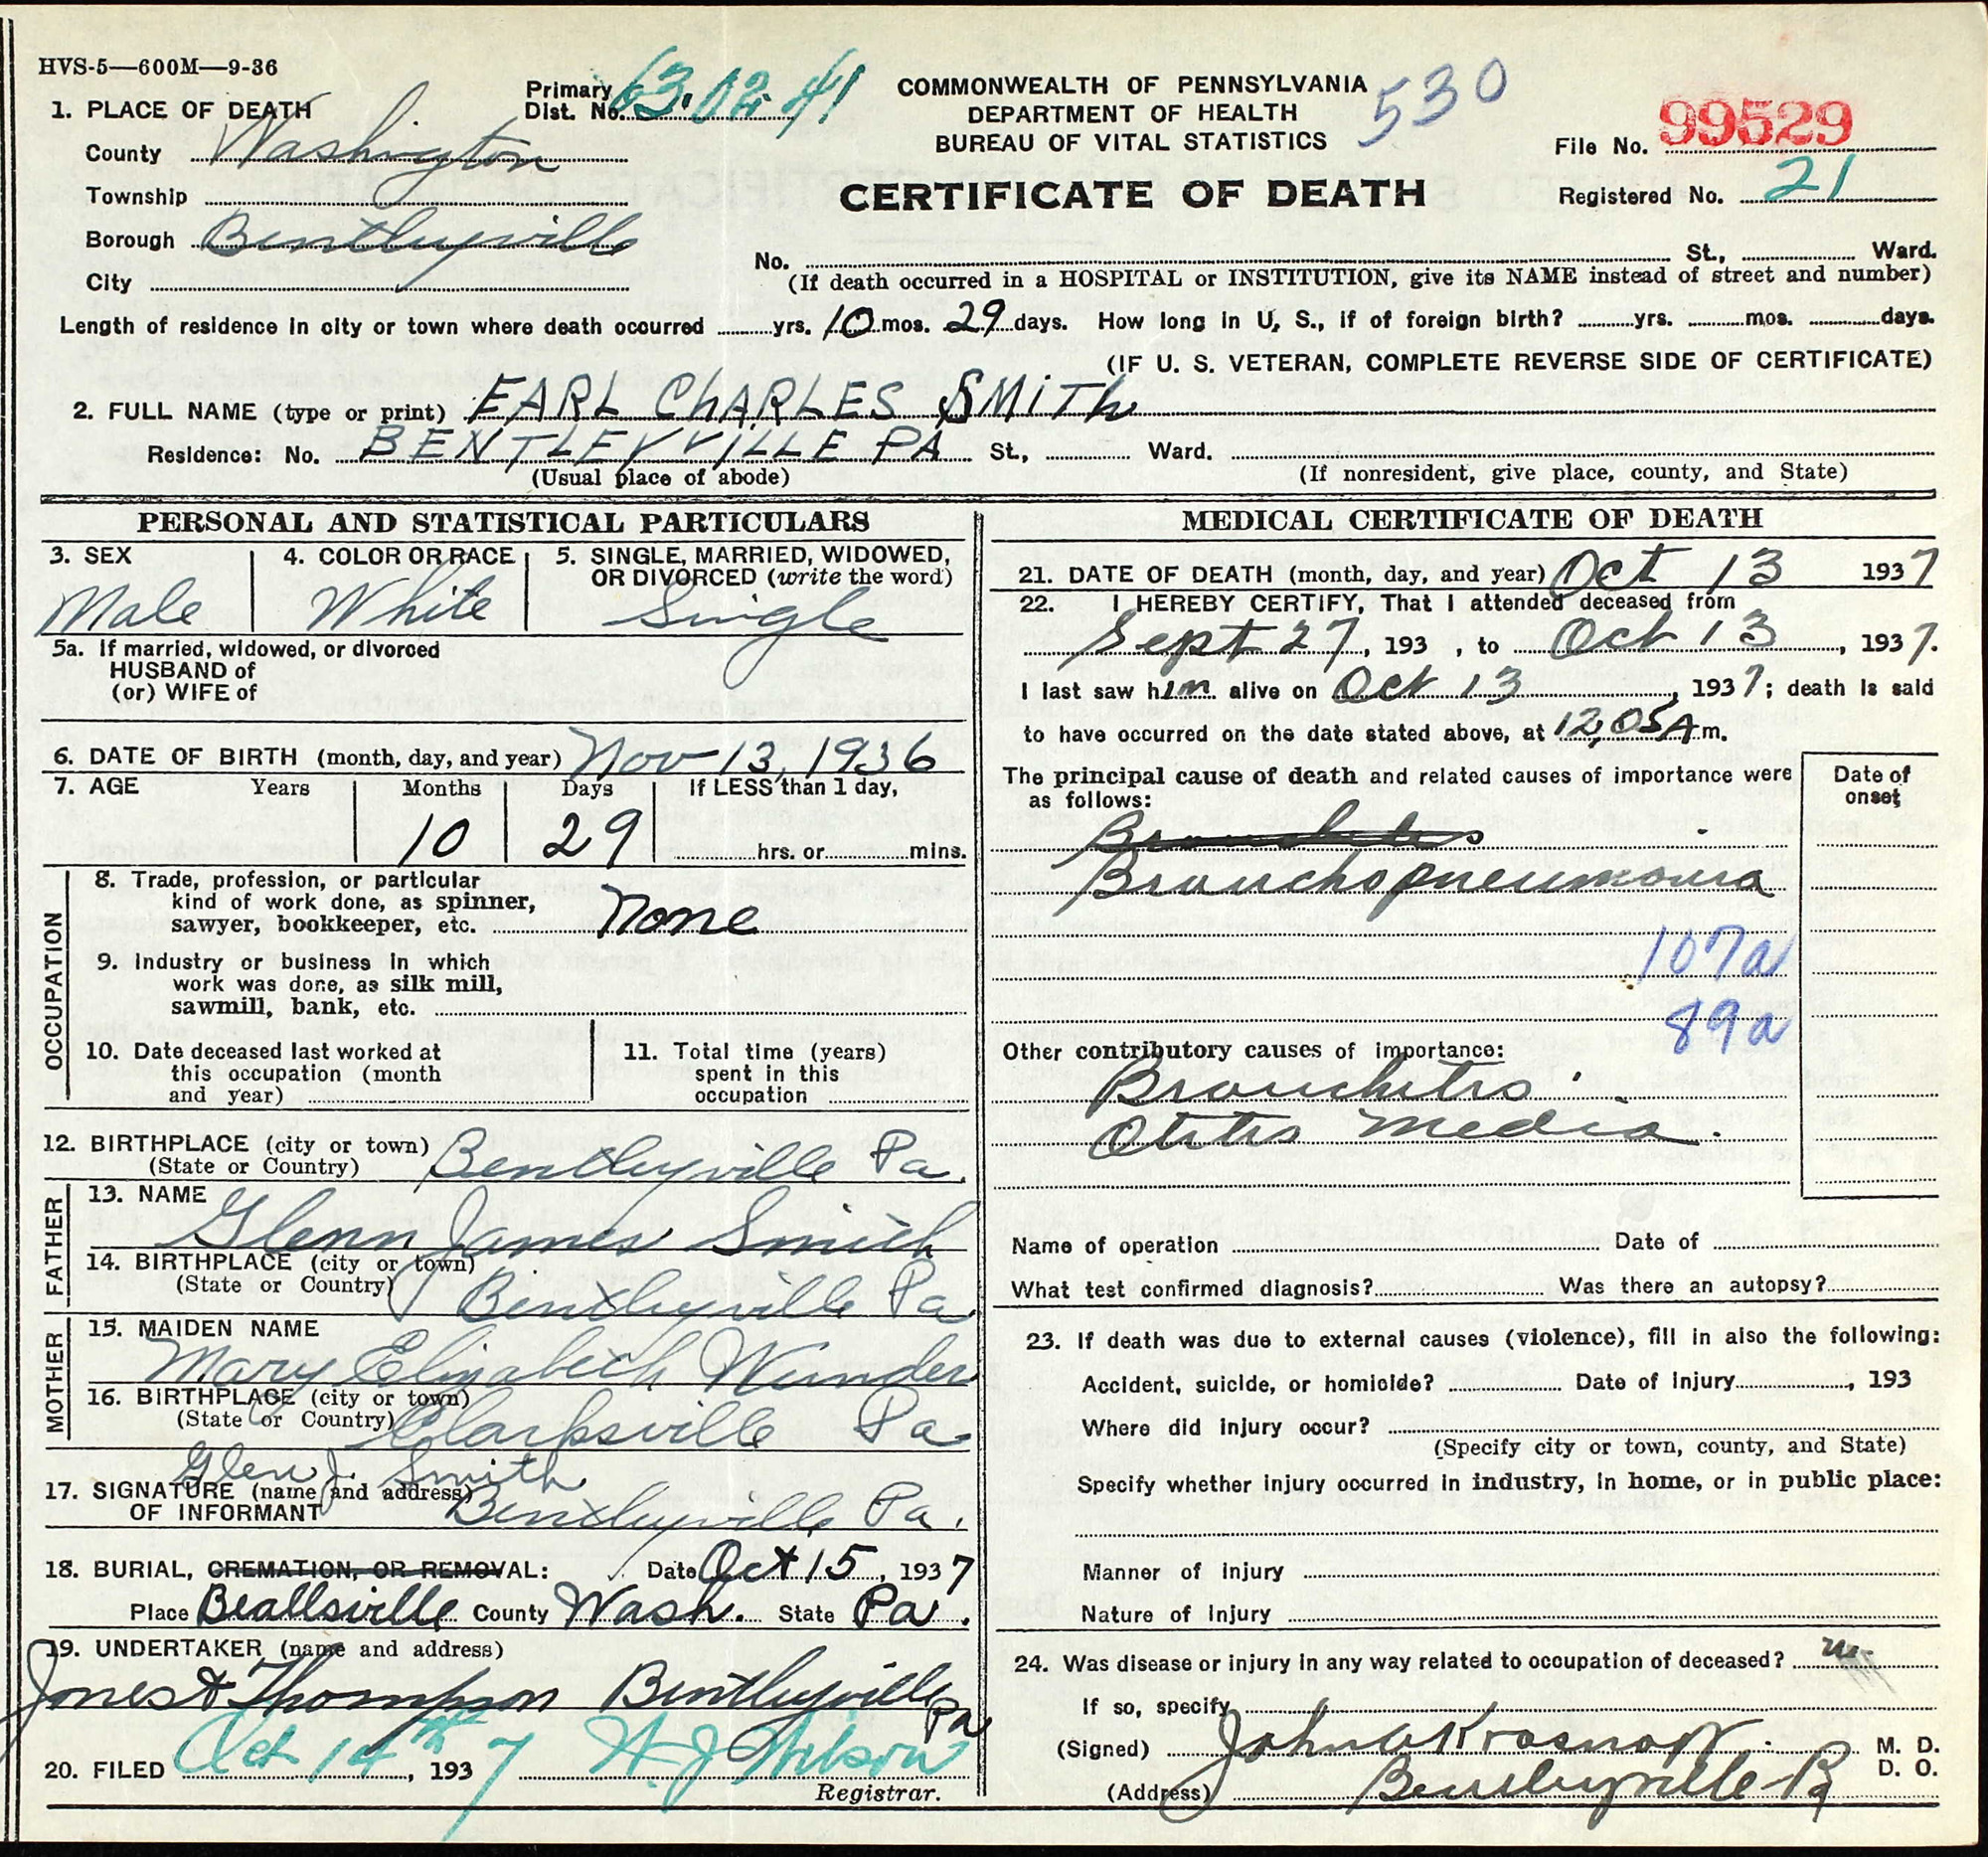 HVS-5—600M—9-36
Primary Dist. No. 63.02.41
COMMONWEALTH OF PENNSYLVANIA
DEPARTMENT OF HEALTH
BUREAU OF VITAL STATISTICS
530
CERTIFICATE OF DEATH
File No. 99529
Registered No. 21
1. PLACE OF DEATH
County Washington
Township
Borough Bentleyville
City
No. St., Ward.
(If death occurred in a HOSPITAL or INSTITUTION, give its NAME instead of street and number)
Length of residence in city or town where death occurred yrs. 10 mos. 29 days. How long in U. S., if of foreign birth? yrs. mos. days.
(IF U. S. VETERAN, COMPLETE REVERSE SIDE OF CERTIFICATE)
2. FULL NAME (type or print) EARL CHARLES SMITH
Residence: No. BENTLEYVILLE PA St., Ward.
(Usual place of abode) (If nonresident, give place, county, and State)
PERSONAL AND STATISTICAL PARTICULARS
3. SEX
Male
4. COLOR OR RACE
White
5. SINGLE, MARRIED, WIDOWED,
OR DIVORCED (write the word)
Single
5a. If married, widowed, or divorced
HUSBAND of
(or) WIFE of
6. DATE OF BIRTH (month, day, and year) Nov 13, 1936
7. AGE Years Months Days If LESS than 1 day,
10 29 hrs. or mins.
OCCUPATION
8. Trade, profession, or particular
kind of work done, as spinner,
sawyer, bookkeeper, etc. None
9. Industry or business in which
work was done, as silk mill,
sawmill, bank, etc.
10. Date deceased last worked at
this occupation (month
and year)
11. Total time (years)
spent in this
occupation
12. BIRTHPLACE (city or town) Bentleyville Pa.
(State or Country)
FATHER
13. NAME
Glenn James Smith
14. BIRTHPLACE (city or town)
(State or Country) Bentleyville Pa
MOTHER
15. MAIDEN NAME
Mary Elizabeth Wunder
16. BIRTHPLACE (city or town)
(State or Country) Clarksville Pa.
Glen J. Smith
17. SIGNATURE (name and address)
OF INFORMANT Bentleyville Pa.
18. BURIAL, CREMATION, OR REMOVAL: Date Oct 15, 1937
Place Beallsville County Wash. State Pa.
19. UNDERTAKER (name and address)
Jones & Thompson Bentleyville Pa
20. FILED Oct 14th, 1937 H. J. Wilson
Registrar.
MEDICAL CERTIFICATE OF DEATH
21. DATE OF DEATH (month, day, and year) Oct 13 1937
22. I HEREBY CERTIFY, That I attended deceased from
Sept 27, 193 , to Oct 13, 1937.
I last saw him alive on Oct 13, 1937; death is said
to have occurred on the date stated above, at 12,05 A m.
The principal cause of death and related causes of importance were
as follows:
Date of
onset
Bronchitis
Bronchopneumonia
107a
89a
Other contributory causes of importance:
Bronchitis.
Otitis Media.
Name of operation Date of
What test confirmed diagnosis? Was there an autopsy?
23. If death was due to external causes (violence), fill in also the following:
Accident, suicide, or homicide? Date of injury , 193
Where did injury occur?
(Specify city or town, county, and State)
Specify whether injury occurred in industry, in home, or in public place:
Manner of injury
Nature of injury
24. Was disease or injury in any way related to occupation of deceased?
If so, specify
(Signed) John W Krasnoff M. D.
D. O.
(Address) Bentleyville Pa